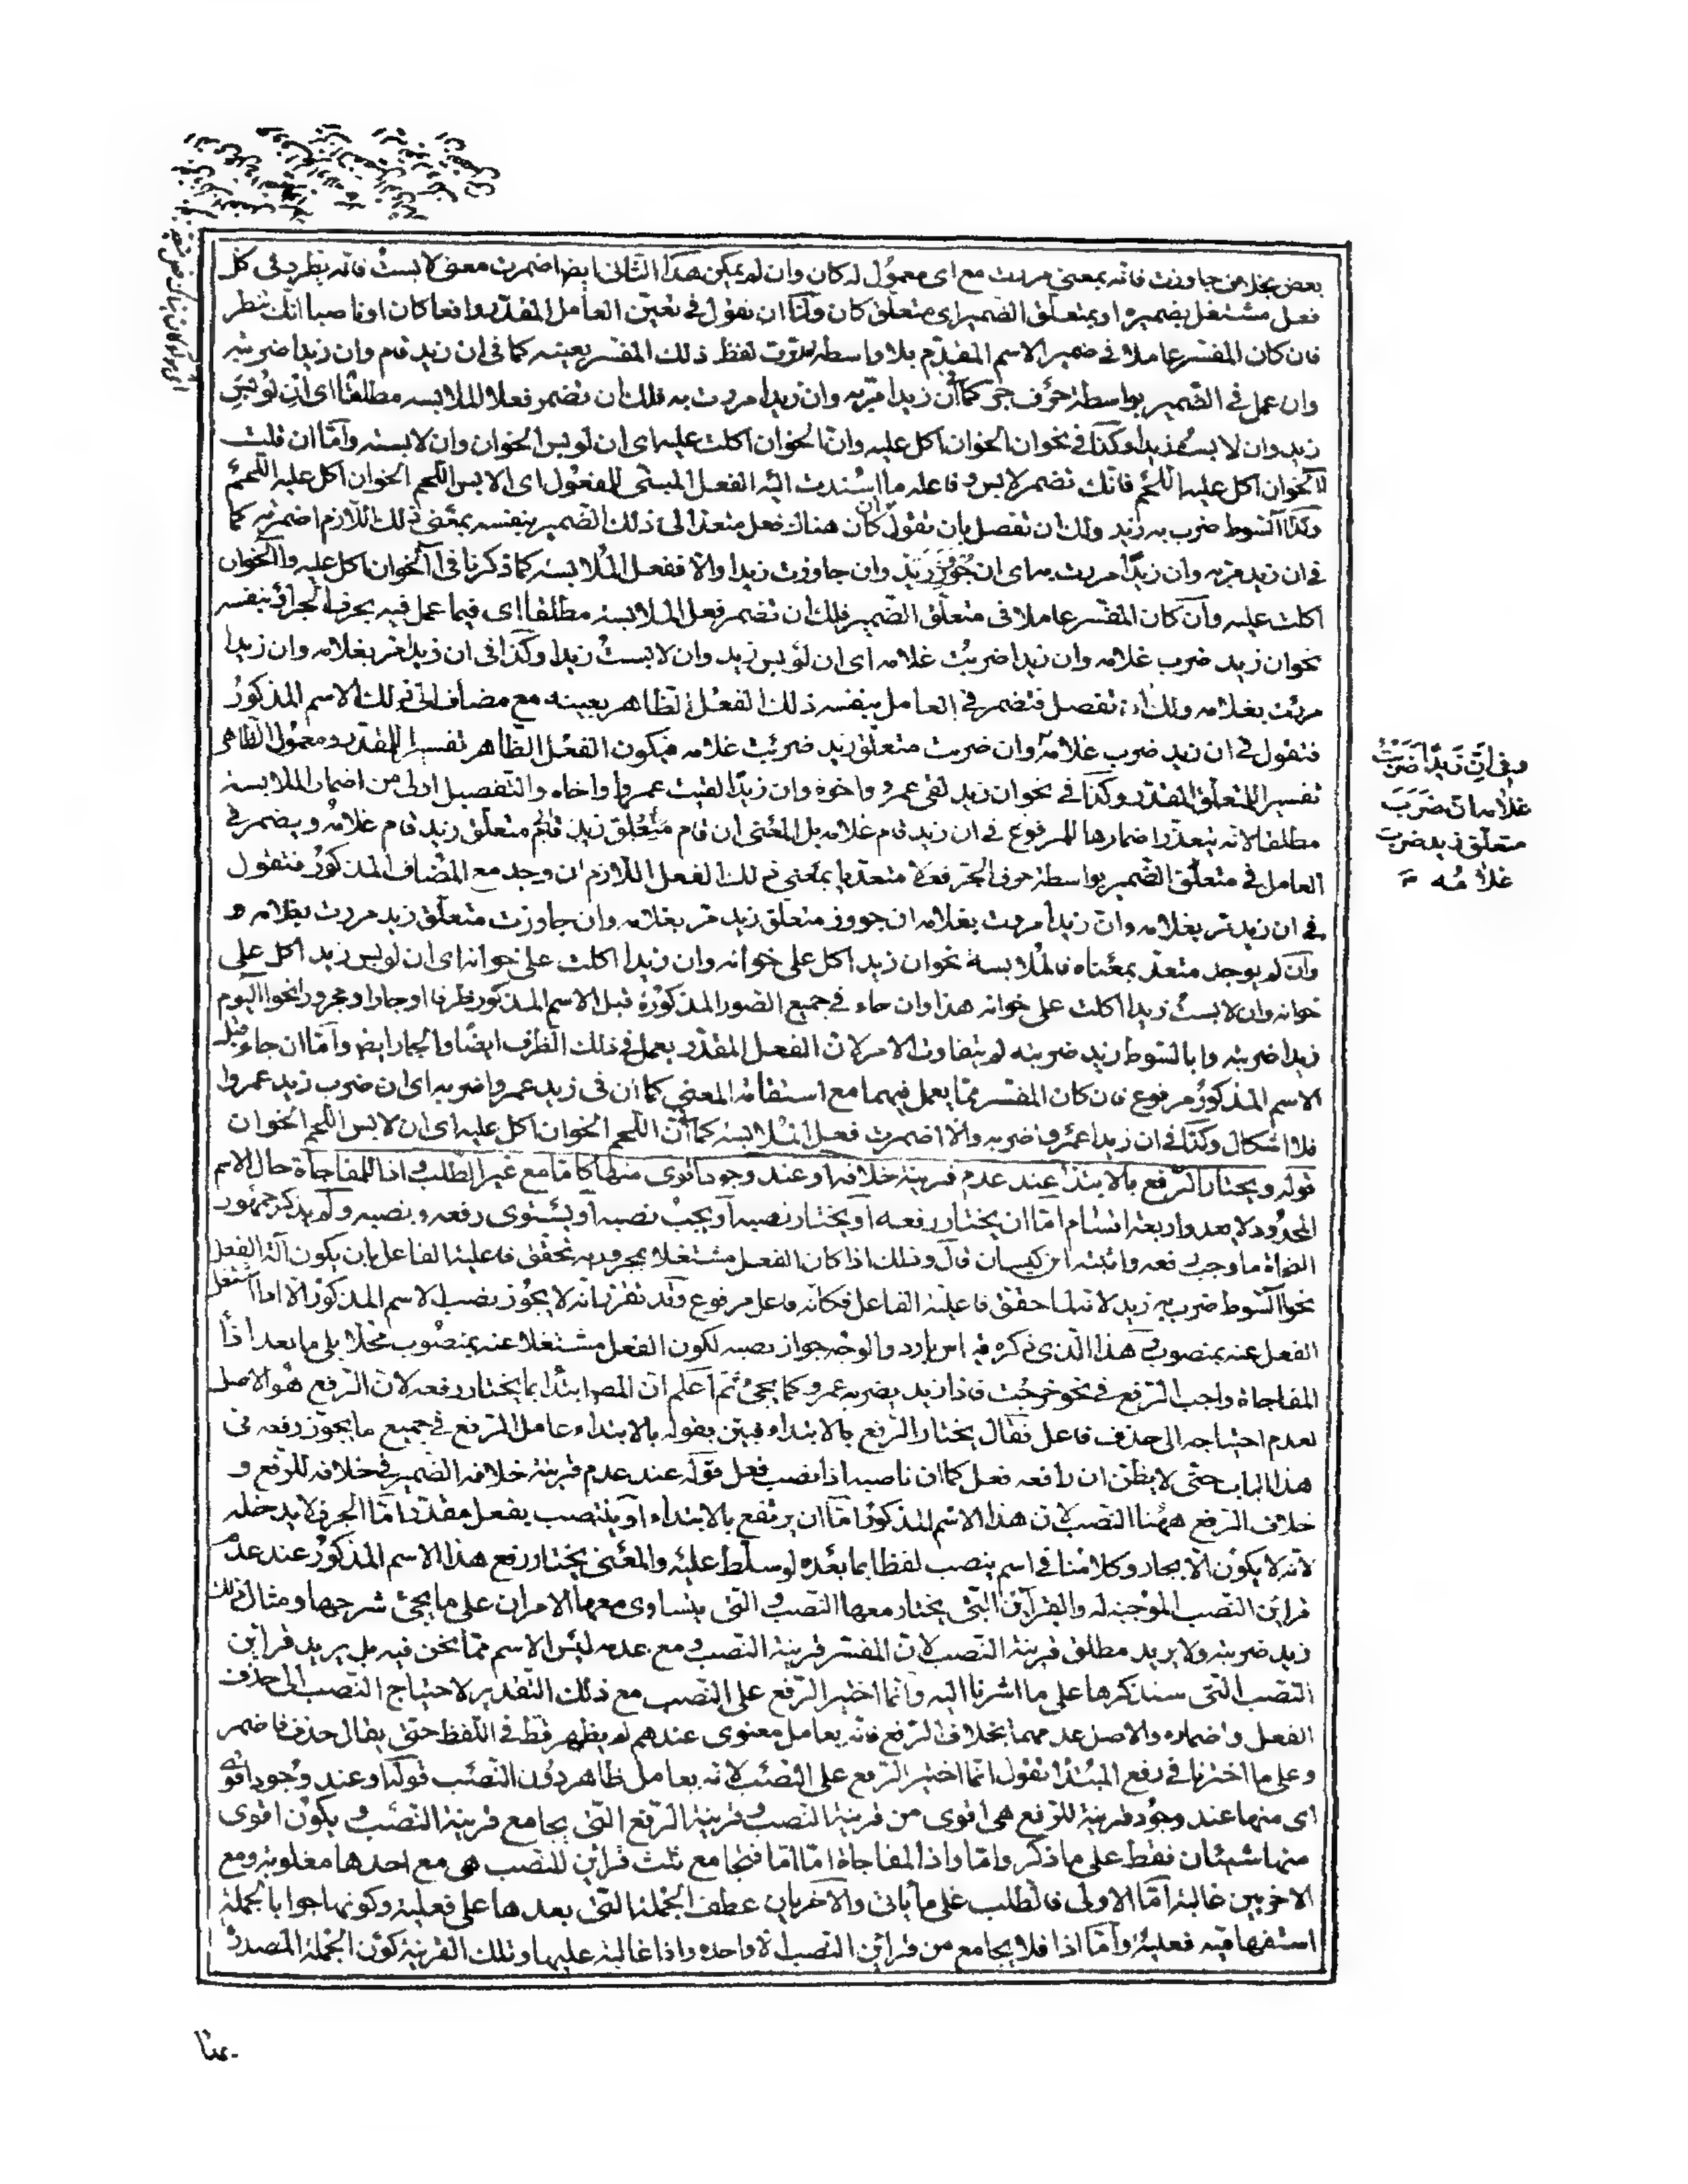 بعض بخلاف جاوزت فانه بمعنى مررت مع اى معمول له كان وان لم يمكن هذا الثانى ايضا اضمرت معنى لابست فانه يطرد فى كل
فعل مشتغل بضميره او بمتعلق الضمير اى متعلق كان ولنا ان نقول فى تعيين العامل المقدر رافعا كان او ناصبا انك تنظر
فان كان المفسر عاملا فى ضمير الاسم المقدم بلا واسطة قدرت لفظ ذلك المفسر بعينه كما فى ان زيد قام وان زيدا ضربته
وان عمل فى الضمير بواسطة حرف جر كما فى ان زيدا مر به وان زيدا مررت به فلك ان تضمر فعل الملابسة مطلقا اى ان لوبس
زيد وان لابست زيدا وكذا فى نحو ان الخوان اكل عليه وان الخوان اكلت عليه اى ان لوبس الخوان وان لابسته واما ان قلت
آلخوان اكل عليه اللحم فانك تضمر لابس وفاعله ما اسندت اليه الفعل المبنى للمفعول اى الابس اللحم الخوان اكل عليه اللحم
وكذا آلسوط ضرب به زيد ولك ان تفصل بان تقول ان كان هناك فعل متعد الى ذلك الضمير بنفسه بمعنى ذلك اللازم اضمرته كما
فى ان زيد مر به وان زيدا مررت به اى ان جووز زيد وان جاوزت زيدا والا ففعل الملابسة كما ذكرنا فى آلخوان اكل عليه وآلخوان
اكلت عليه وان كان المفسر عاملا فى متعلق الضمير فلك ان تضمر فعل الملابسة مطلقا اى فيما عمل فيه بحرف الجر او بنفسه
نحو ان زيد ضرب غلامه وان زيدا ضربت غلامه اى ان لوبس زيد وان لابست زيدا وكذا فى ان زيدا مر بغلامه وان زيدا
مررت بغلامه ولك ان تفصل فتضمر فى العامل بنفسه ذلك الفعل الظاهر بعينه مع مضاف الى ذلك الاسم المذكور
فتقول فى ان زيد ضرب غلامه وان ضربت متعلق زيد ضربت غلامه فيكون الفعل الظاهر تفسيرا للمقدر ومعمول الظاهر
تفسيرا للمتعلق المقدر وكذا فى نحو ان زيد لقى عمرو واخوه وان زيدا لقيت عمروا واخاه والتفصيل اولى من اضمار الملابسة
مطلقا لانه يتعذر اضمارها للمرفوع فى ان زيد قام غلامه بل المعنى ان قام متعلق زيد قام متعلق زيد قام غلامه ويضمر فى
العامل فى متعلق الضمير بواسطة حرف الجر فعلا متعديا بمعنى ذلك الفعل اللازم ان وجد مع المضاف المذكور فتقول
فى ان زيد مر بغلامه وان زيدا مررت بغلامه ان جووز متعلق زيد مر بغلامه وان جاوزت متعلق زيد مررت بغلامه و
وان لم يوجد متعد بمعناه فالملابسة نحو ان زيد اكل على خوانه وان زيدا اكلت على خوانه اى ان لوبس زيد اكل على
خوانه وان لابست زيدا اكلت على خوانه هذا وان جاء فى جميع الصور المذكورة قبل الاسم المذكور ظرفا او جارا ومجرورا نحو آليوم
زيدا ضربته وا بالسوط زيد ضربته لم يتفاوت الامر لان الفعل المقدر يعمل فى ذلك الظرف ايضا والجار ايضا واما ان جاء قبل
الاسم المذكور مرفوع فان كان المفسر مما يعمل فيهما مع استقامة المعنى كما ان فى زيد عمروا ضربه اى ان ضرب زيد عمروا
فلا اشكال وكذا فى ان زيدا عمرو اضربه والا اضمرت فعل الملابسة كما فى ان اللحم الخوان اكل عليه اى ان لابس اللحم الخوان
قوله ويختار الرفع بالابتداء عند عدم قرينة خلافه او عند وجود اقوى منها كاما مع غير الطلب واذا للمفاجاة حال الاسم
المحدود لا يعدو اربعة اقسام اما ان يختار رفعه او يختار نصبه او يجب نصبه او يستوى رفعه ونصبه ولم يذكر جمهور
النحاة ما وجب رفعه واثبته ابن كيسان قال وذلك اذا كان الفعل مشتغلا بمجرور به تحقق فاعلية الفاعل بان يكون آلة الفعل
نحو آلسوط ضرب به زيد لانه لما حقق فاعلية الفاعل فكانه فاعل مرفوع وقد تقرر انه لا يجوز نصب الاسم المذكور الا اذا اشتغل
الفعل عنه بمنصوب هذا الذى ذكره قياس بارد والوجه جواز نصبه لكون الفعل مشتغلا عنه بمنصوب محلا بلى ما بعد اذا
المفاجاة واجب الرفع فى نحو خرجت فاذا زيد يضربه عمرو كما يجئ ثم اعلم ان المص ابتدا بما يختار رفعه لان الرفع هو الاصل
لعدم احتياجه الى حذف فاعل فقال يختار الرفع بالابتداء فبين بقوله بالابتداء عامل الرفع فى جميع ما يجوز رفعه فى
هذا الباب حتى لا يظن ان رافعه فعل كما ان ناصبه اذا نصب فعل قوله عند عدم قرينة خلافه الضمير فى خلافه للرفع و
خلاف الرفع ههنا النصب لان هذا الاسم المذكور اما ان يرتفع بالابتداء او ينتصب بفعل مقدر اما الجر فلا يدخله
لانه لا يكون الا بجار وكلامنا فى اسم ينصب لفظا بما بعده لو سلط عليه والمعنى يختار رفع هذا الاسم المذكور عند عدم
قراين النصب الموجبة له والقراين التى يختار معها النصب والتى يتساوى معها الامران على ما يجئ شرحها ومثال ذلك
زيد ضربته ولا يريد مطلق قرينة النصب لان المفسر قرينة النصب ومع عدمه ليس الاسم مما نحن فيه بل يريد قراين
النصب التى سنذكرها على ما اشرنا اليه وانما اختير الرفع على النصب مع ذلك التقدير لاحتياج النصب الى حذف
الفعل واضماره والاصل عدمهما بخلاف الرفع فانه بعامل معنوى عندهم لم يظهر قط فى اللفظ حتى يقال حذف فاضمر
وعلى ما اخترنا فى رفع المبتدا نقول انما اختير الرفع على النصب لانه بعامل ظاهر دون النصب قوله او عند وجود اقوى
اى منها عند وجود قرينة للرفع هى اقوى من قرينة النصب وقرينة الرفع التى يجامع قرينة النصب ويكون اقوى
منها شيئان فقط على ما ذكر واما واذا المفاجاة اما اما فتجامع ثلث قراين للنصب هى مع احدها مغلوبة ومع
الاخريين غالبة اما الاولى فالطلب على ما يأتى والاخريان عطف الجملة التى بعدها على فعلية وكونها جوابا لجملة
استفهامية فعلية واما اذا فلا يجامع من قراين النصب الا واحدة واذا غالبة عليها وتلك القرينة كون الجملة المصدرة
وفى ان زيدا ضربت
غلامه ان ضرب
متعلق زيد ضرب
غلامه